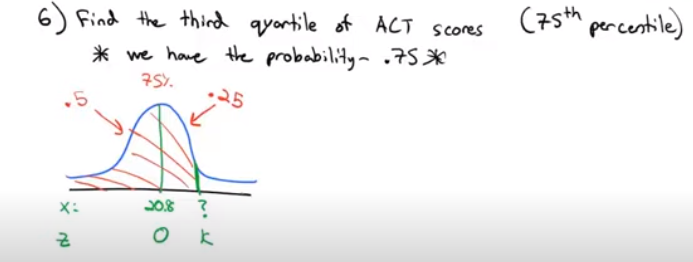 6) Find the third quartile of ACT scores (75th percentile)
* we have the probability - .75 *
75%
.5 .25
X: 20.8 ?
Z 0 k